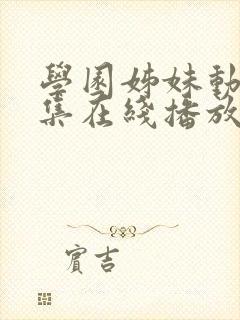 學園姊妹動
集在綫播放
賓吉